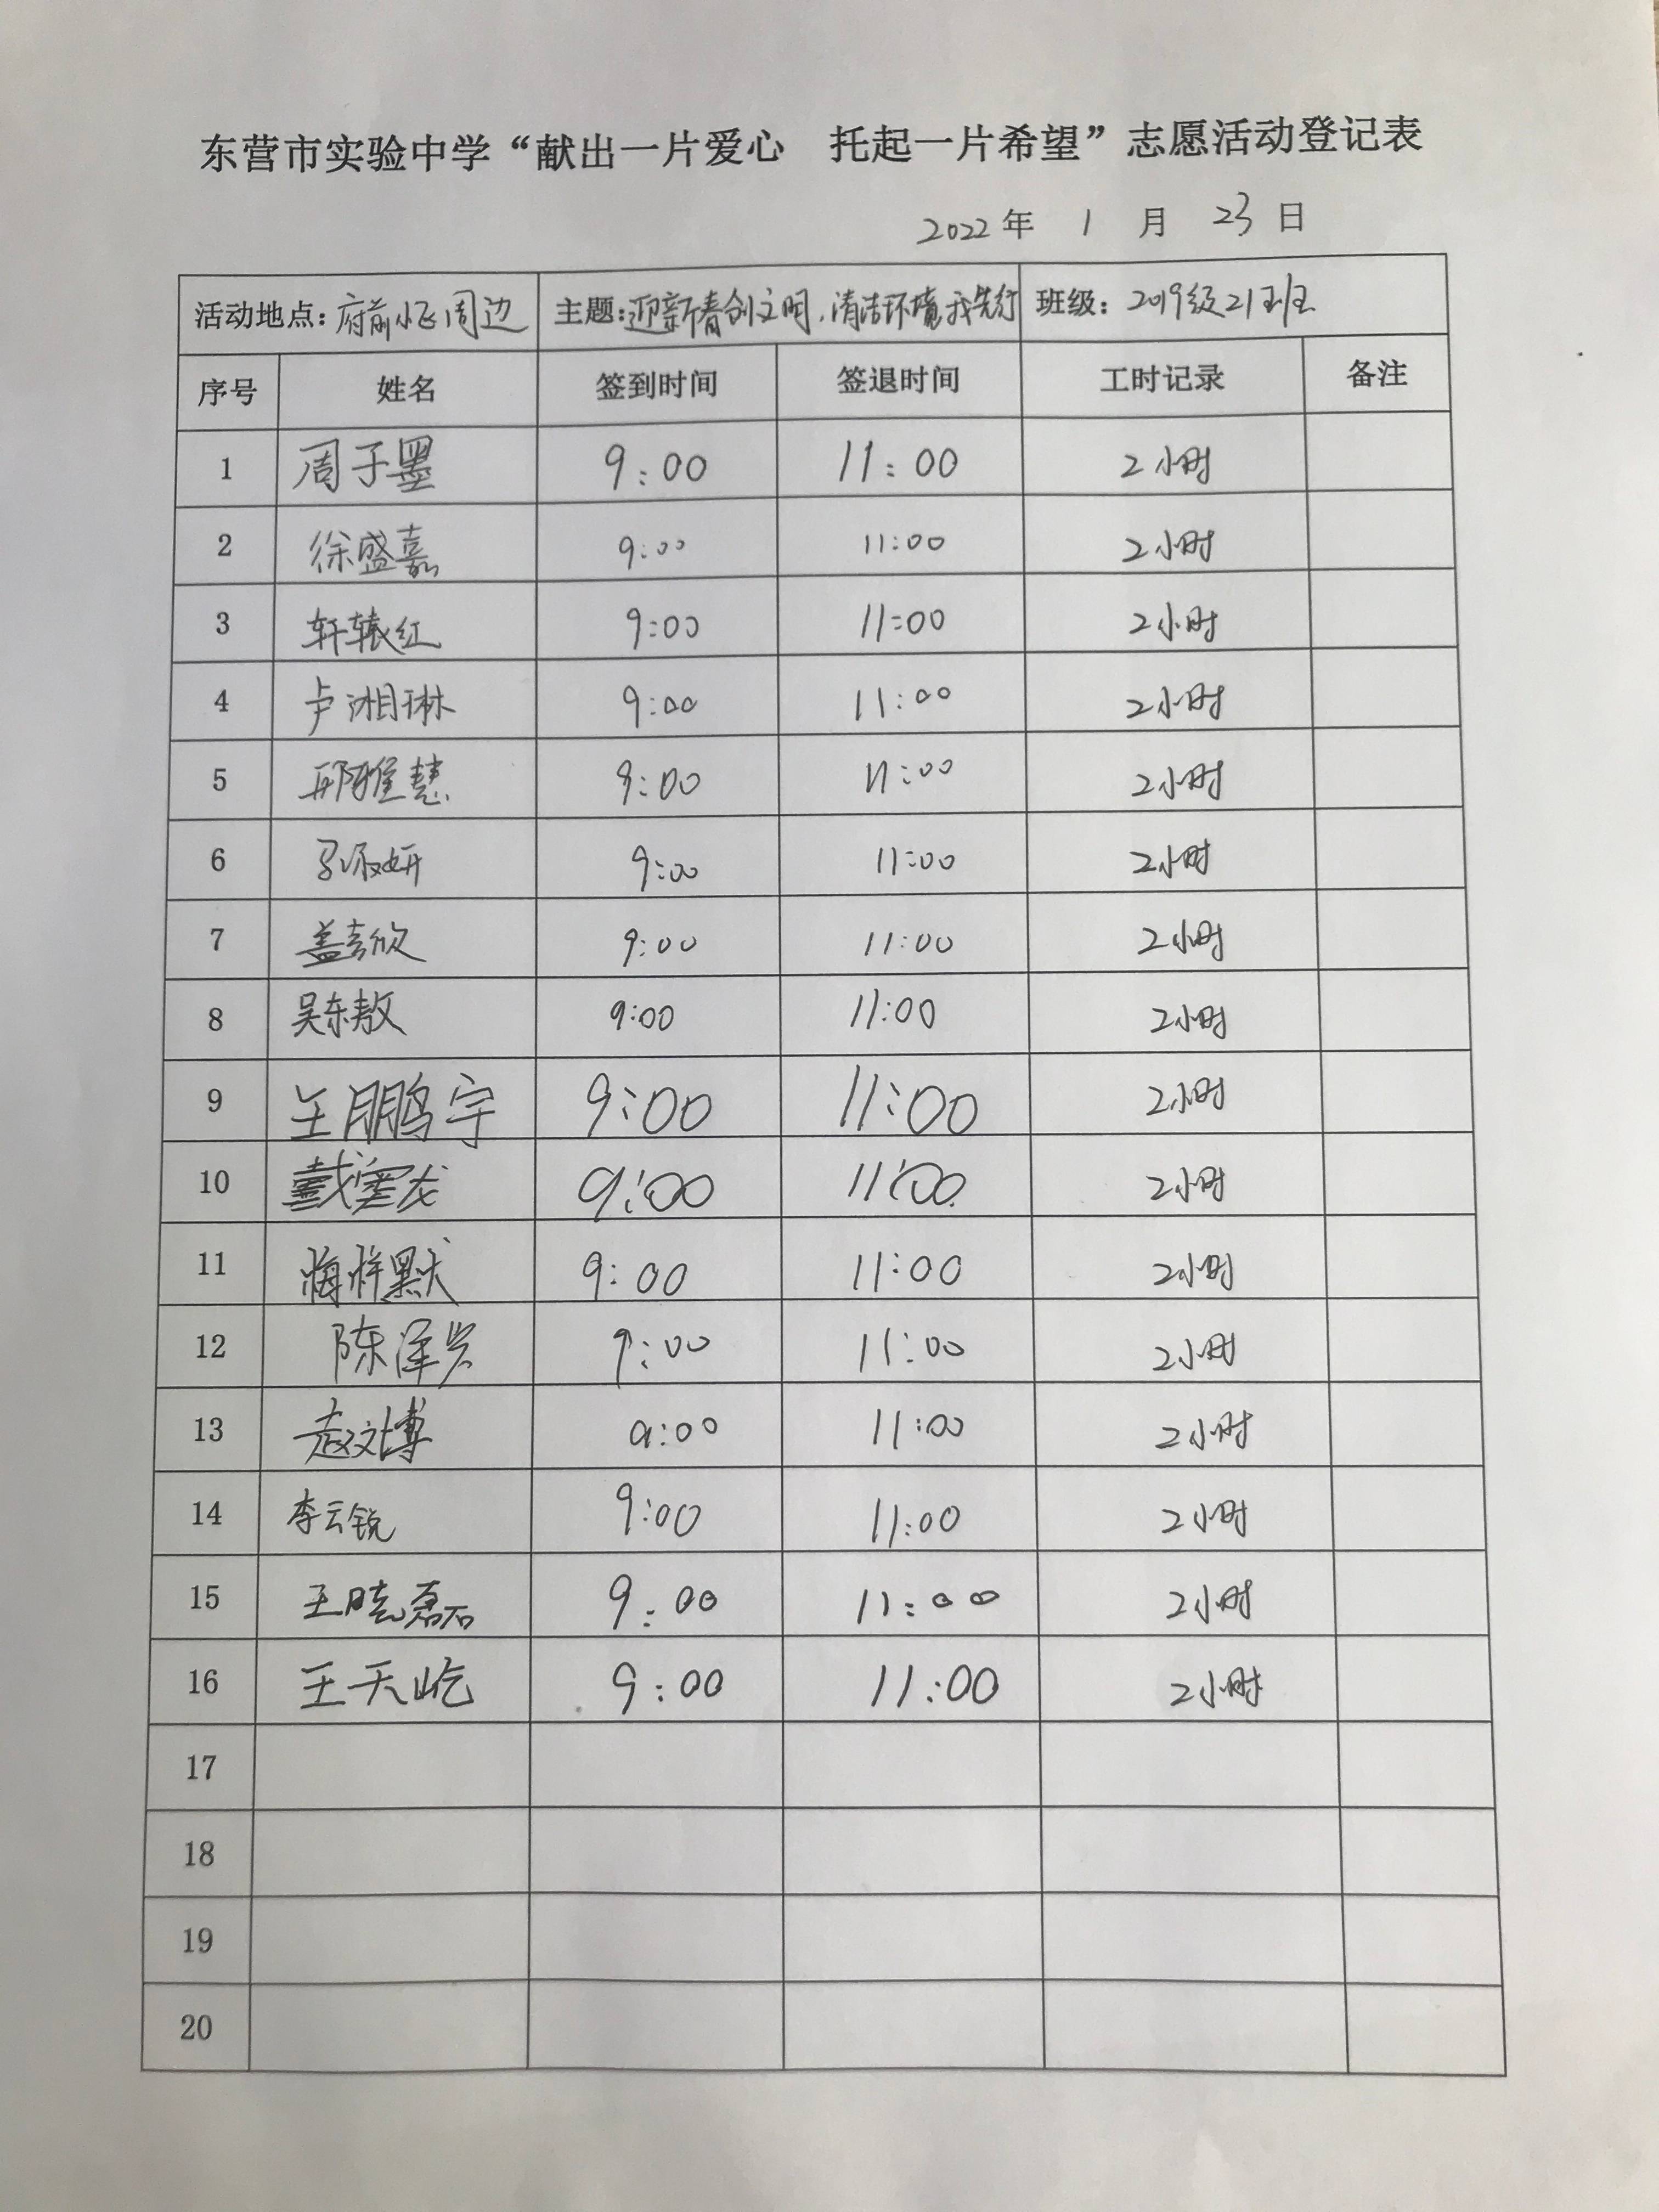 东营市实验中学“献出一片爱心 托起一片希望”志愿活动登记表
2022年 1 月 23 日
活动地点：府前小区周边 主题：迎新春创文明，清洁环境我先行 班级：2019级21班
序号 姓名 签到时间 签退时间 工时记录 备注
1 周子墨 9:00 11:00 2小时
2 徐盛嘉 9:00 11:00 2小时
3 轩辕红 9:00 11:00 2小时
4 卢湘琳 9:00 11:00 2小时
5 邢雅慧 9:00 11:00 2小时
6 9:00 11:00 2小时
7 盖嘉欣 9:00 11:00 2小时
8 吴东敖 9:00 11:00 2小时
9 王鹏宇 9:00 11:00 2小时
10 9:00 11:00 2小时
11 9:00 11:00 2小时
12 陈泽兴 9:00 11:00 2小时
13 赵文博 9:00 11:00 2小时
14 李云锐 9:00 11:00 2小时
15 王晓磊 9:00 11:00 2小时
16 王天屹 9:00 11:00 2小时
17
18
19
20